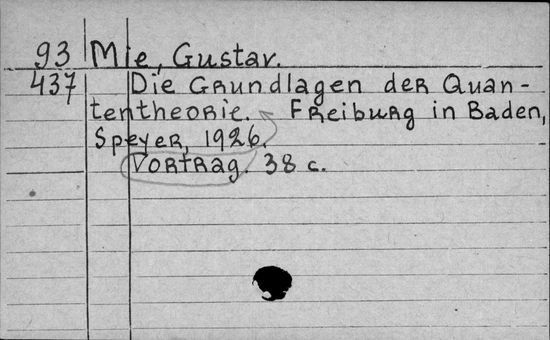 93 Mie, Gustav.
437 Die Grundlagen der Quan-
tentheorie. Freiburg in Baden,
Speyer, 1926.
Vortrag. 38 c.